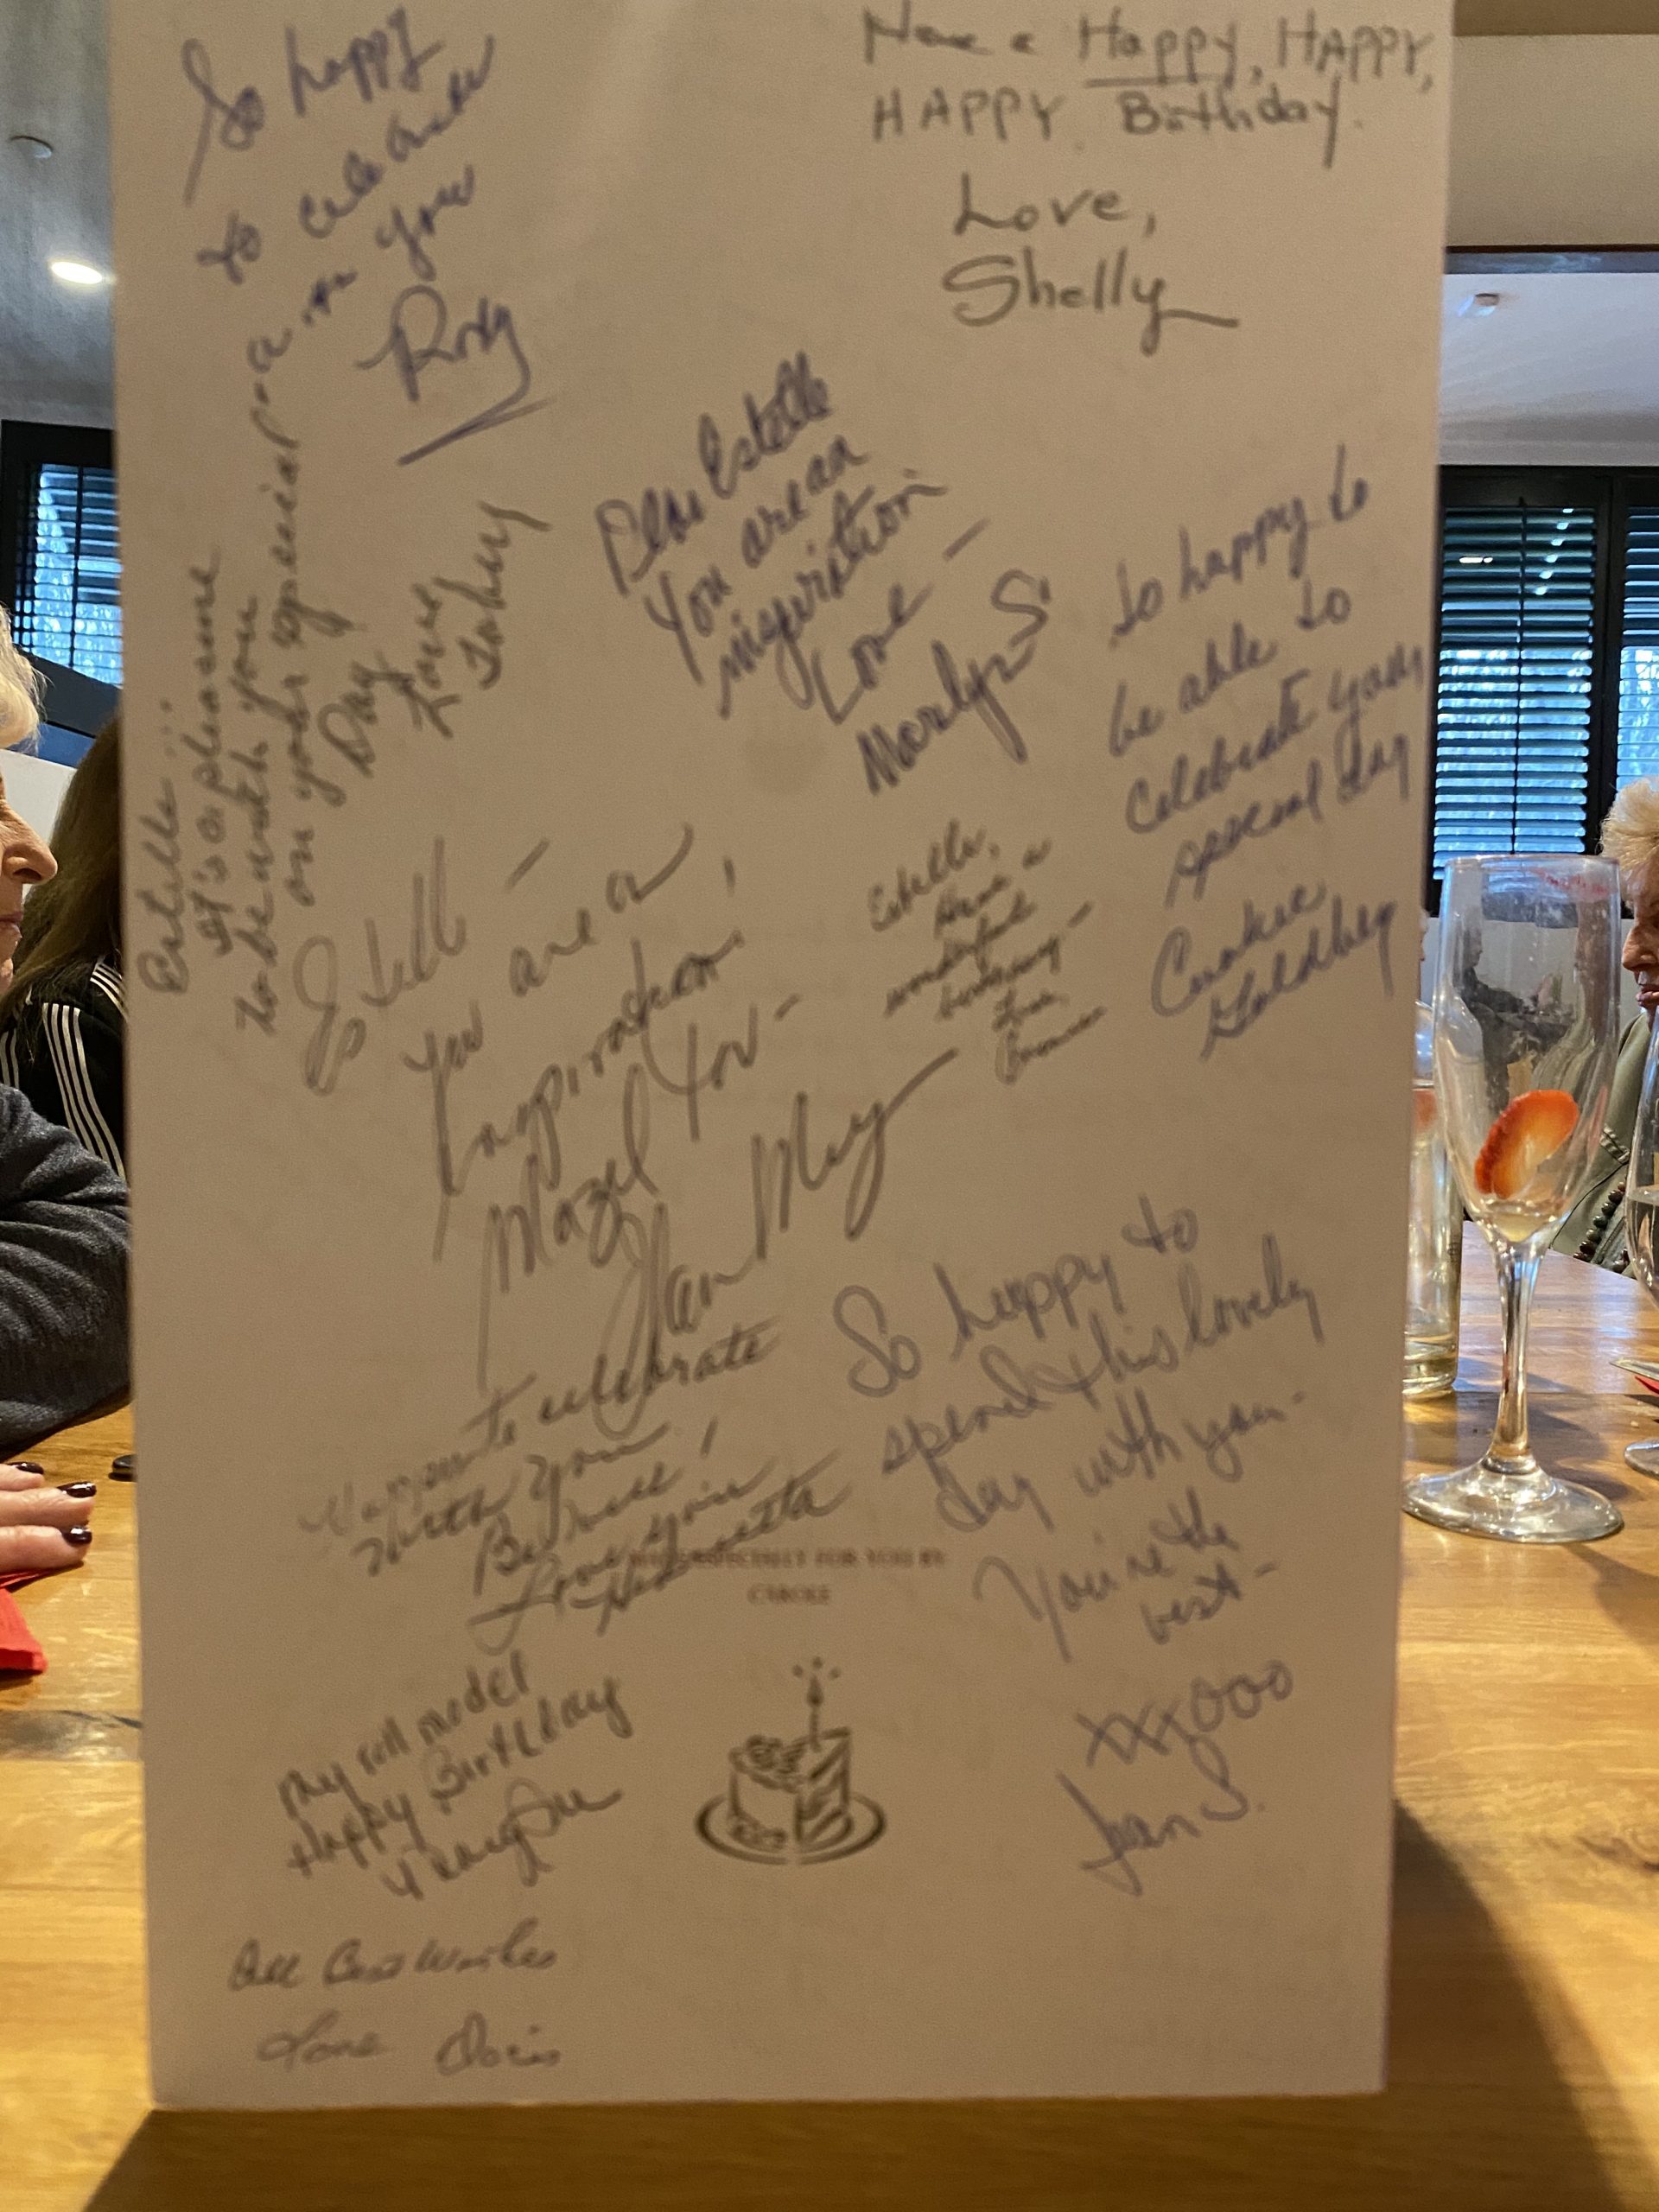 So happy
to celebrate
with you
Roz
Have a Happy, HAPPY,
HAPPY Birthday.
Love,
Shelly
Estelle...
It's a pleasure
to be with you
on your special
Day
Love
Dear Estelle
You are an
inspiration
Love -
Marilyn S
So happy to
be able to
celebrate your
special day
Cookie
Goldberg
Estelle -
You are an
Inspiration!
Mazel Tov -
Estelle,
Have a
wonderful
birthday -
Love,
to celebrate
with you
Love you
Henrietta
So happy to
spend this lovely
day with you -
You're the
best -
xxxooo
Joan S.
ESPECIALLY FOR YOU BY
CAROLE
My roll model
Happy Birthday
All Best Wishes
Love Doris